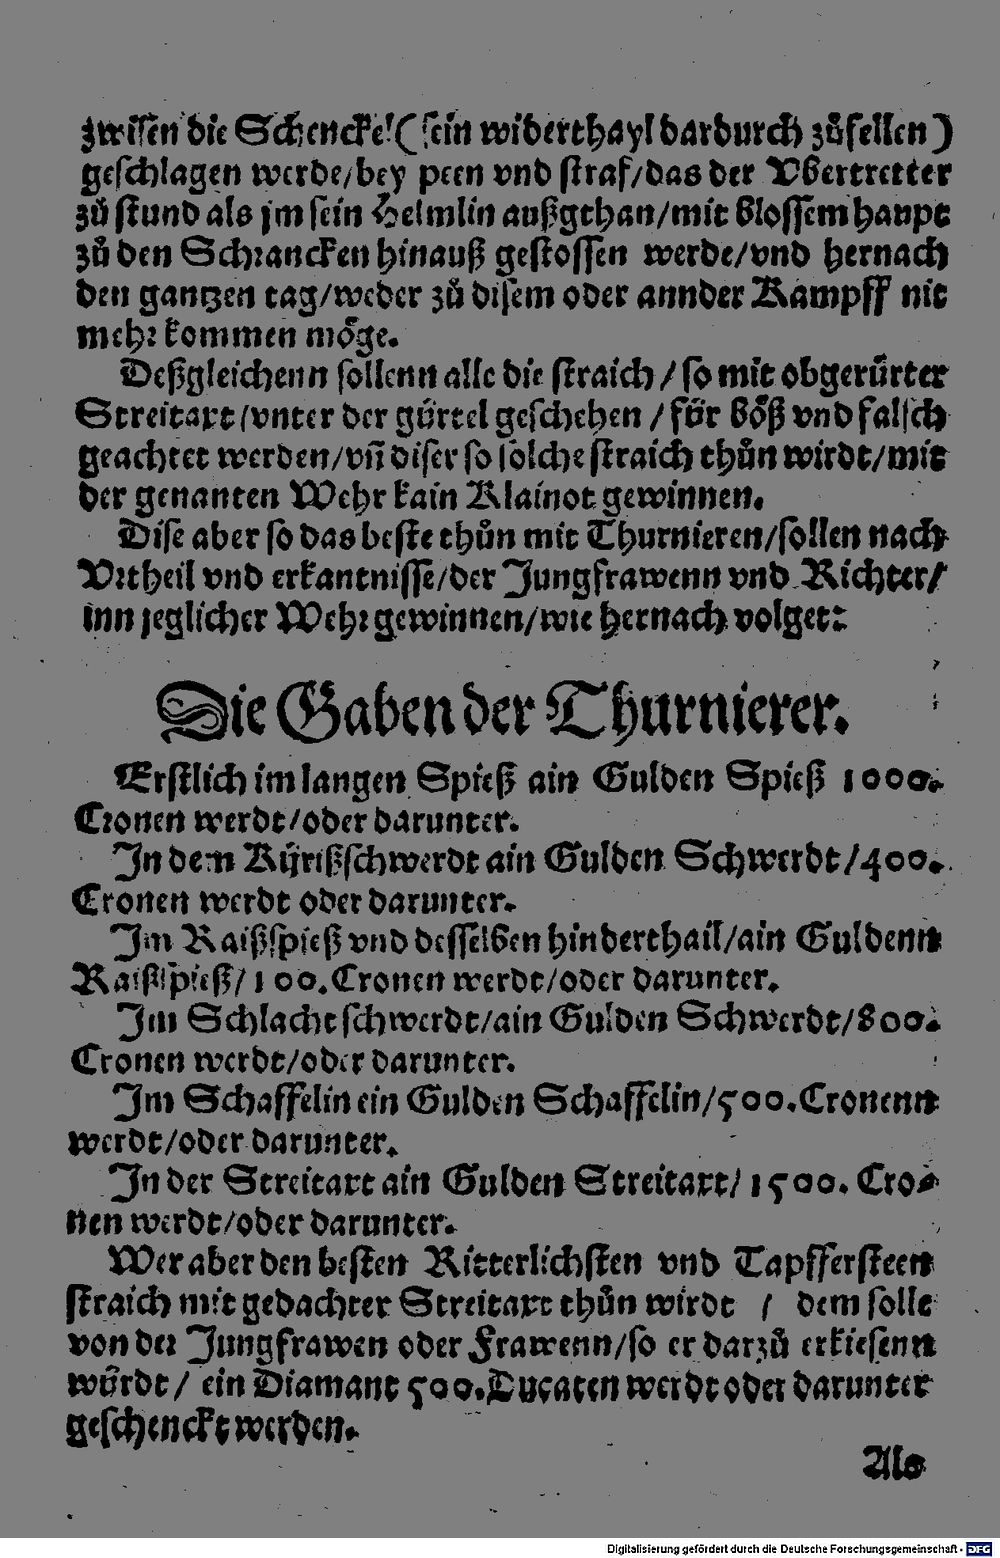 zwisen die Schenckel (sein widerthayl dardurch zůfellen)
geschlagen werde/bey peen vnd straf/das der Vbertretter
zů stund als jm sein Helmlin außgthan/mit blossem haupt
zů den Schrancken hinauß gestossen werde/vnd hernach
den gantzen tag/weder zů disem oder annder Kampff nit
mehr kommen möge.
Deßgleichenn sollenn alle die straich / so mit obgerürter
Streitaxt/vnter der gürtel geschehen / für böß vnd falsch
geachtet werden/vñ diser so solche straich thůn wirdt/mit
der genanten Wehr kain Klainot gewinnen.
Dise aber so das beste thůn mit Thurnieren/sollen nach
Vrtheil vnd erkantnisse/der Jungfrawenn vnd Richter/
inn jeglicher Wehr gewinnen/wie hernach volget:
Die Gaben der Thurnierer.
Erstlich im langen Spieß ain Gulden Spieß 1000.
Cronen werdt/oder darunter.
In dem Kyrißschwerdt ain Gulden Schwerdt/400.
Cronen werdt oder darunter.
Im Raißspieß vnd desselben hinderthail/ain Guldenn
Raißspieß/100. Cronen werdt/oder darunter.
Im Schlachtschwerdt/ain Gulden Schwerdt/800.
Cronen werdt/oder darunter.
Im Schaffelin ein Gulden Schaffelin/500. Cronenn
werdt/oder darunter.
In der Streitaxt ain Gulden Streitaxt/ 1500. Cro⸗
nen werdt/oder darunter.
Wer aber den besten Ritterlichsten vnd Tapffersteen
straich mit gedachter Streitaxt thůn wirdt / dem solle
von der Jungfrawen oder Frawenn/so er darzů erkiesenn
würdt / ein Diamant 500. Ducaten werdt oder darunter
geschenckt werden.
Als
Digitalisierung gefördert durch die Deutsche Forschungsgemeinschaft - DFG